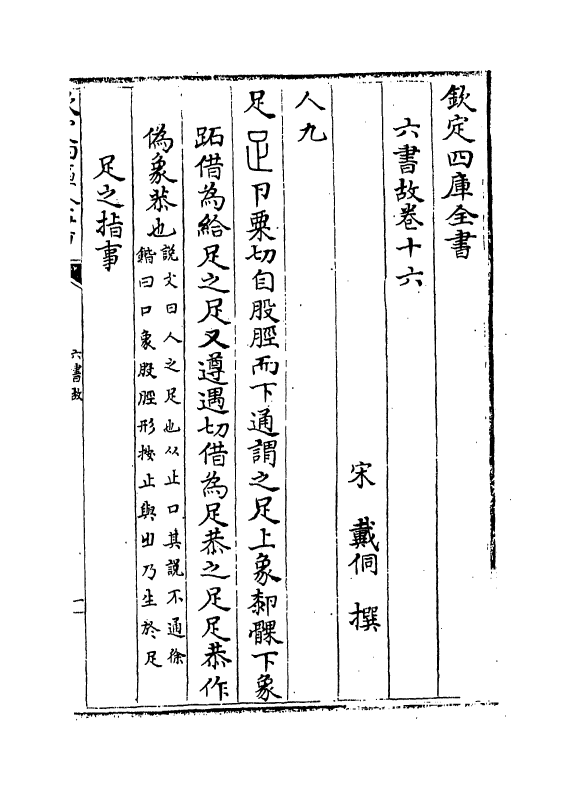 欽定四庫全書
六書故卷十六
宋 戴侗 撰
人九
足 𤴓 即粟切自股脛而下通謂之足上象䣛髁下象
跖借為給足之足又遵遇切借為足恭之足足恭作
偽象恭也說文曰人之足也从止口其說不通徐
鍇曰口象股脛形按止與𡳿乃生於足
足之指事
六書故
一